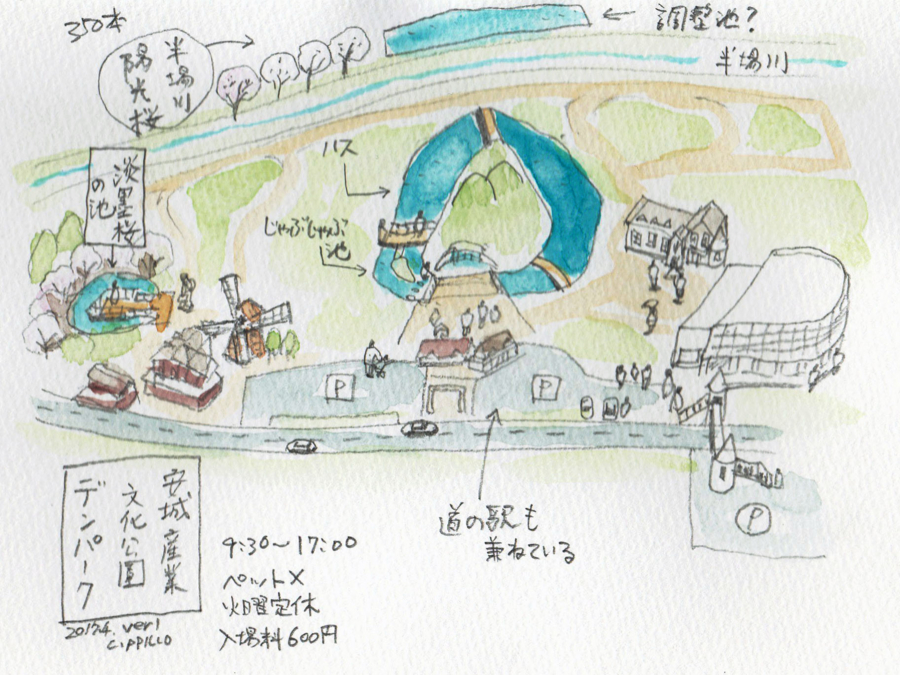 350本
半場川
陽光桜
調整池?
半場川
ハス
じゃぶじゃぶ
池
淡墨桜
の池
P
P
P
道の駅も
兼ねている
安城産業
文化公園
デンパーク
2017.4. veri
CIPPILLO
9:30〜17:00
ペット×
火曜定休
入場料600円